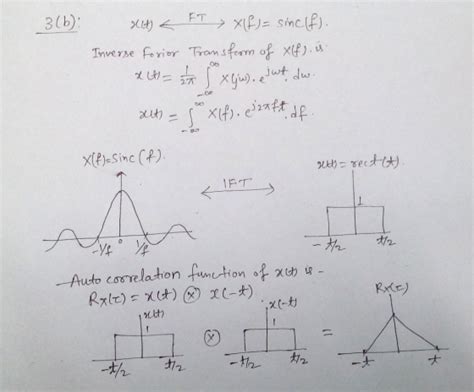 3(b): x(t) ←FT→ X(f) = sinc(f).
Inverse Forier Transform of X(f). is
x(t) = 1/2π ∫_{-∞}^{∞} X(jω). e^{jωt}. dω.
x(t) = ∫_{-∞}^{∞} X(f). e^{j2πft}. df.
X(f)=sinc(f).
x(t) = rect(t).
←IFT→
1
-1/f 0 1/f
-t/2 t/2
Auto coorelation function of x(t) is -
Rx(τ) = x(t) ⊗ x(-t)
x(t) x(-t) Rx(τ)
1 ⊗ 1 =
-t/2 t/2 -t/2 t/2 -t t